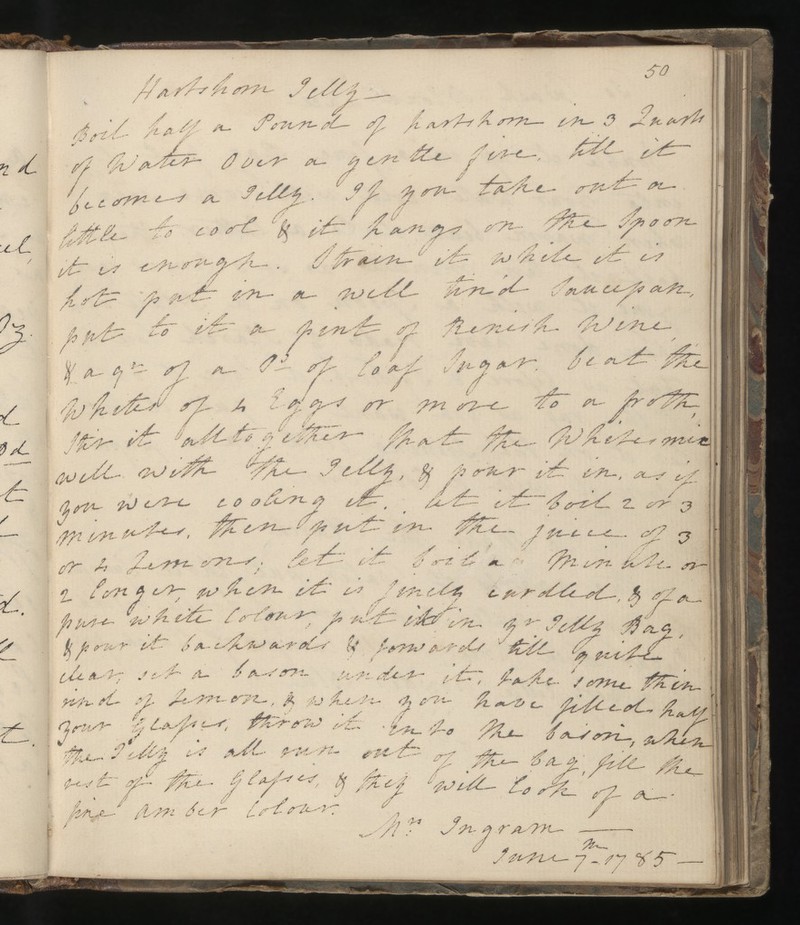 50
Hartshorn Jelly —
Boil half a Pound of hartshorn in 3 Quarts
of Water Over a gentle fire. till it
becomes a Jelly. If you take out a
little to cool & it hangs on the Spoon
it is enough. Strain it while it is
hot put in a well tin'd Saucepan,
put to it a pint of Renish Wine
& a qr of a Pd of loaf Sugar. beat the
Whites of 4 Eggs or more to a froth,
Stir it alltogether that the Whites mix
well with the Jelly, & pour it in, as if
you were cooling it. let it boil 2 or 3
minutes. then put in the juice of 3
or 4 Lemons; let it boil a Minute or
2 longer, when it is finely curdled, & of a
pure white Colour, put it in yr Jelly Bag,
& pour it backwards & forwards till quite
clear, set a bason under it, take some thin
rind of Lemon, & when you have filled half
your Glasses, throw it into the bason, when
the Jelly is all run out of the bag, fill the
rest of the Glasses, & they will look of a
fine amber Colour.
Mrs Ingram —
June 7th 1785 —
nd
d
t
d.
t.